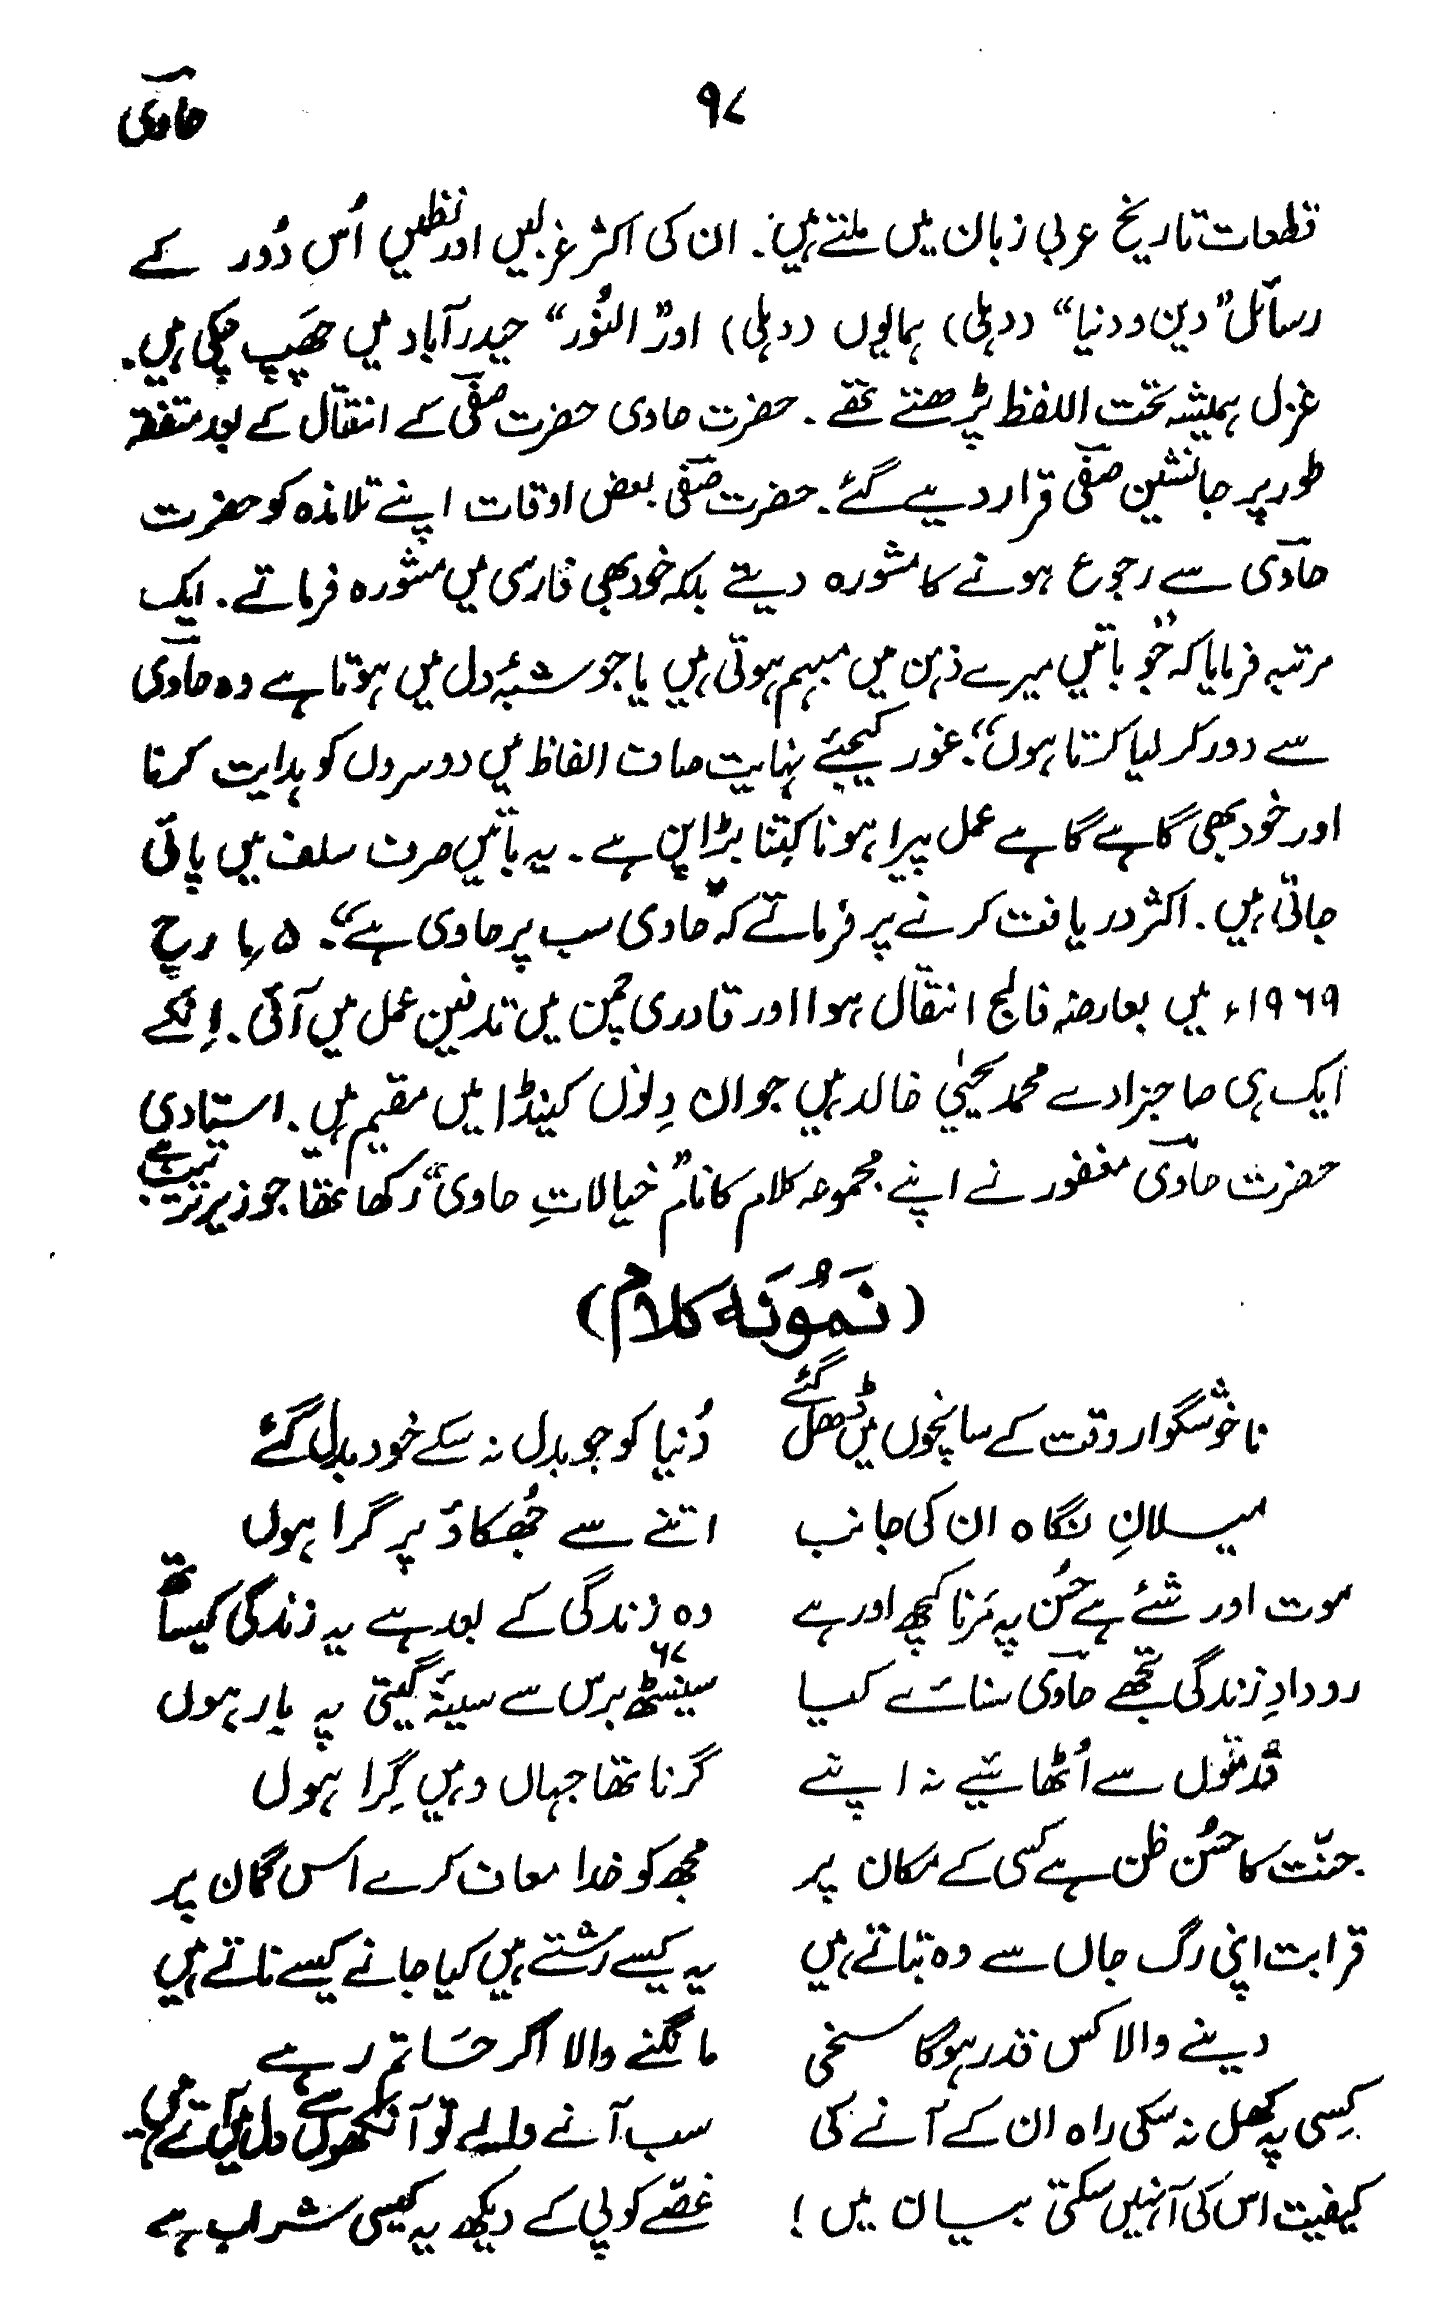 حاوی
۹۷
قطعات تاریخ عربی زبان میں ملتے ہیں۔ ان کی اکثر غزلیں اور نظمیں اُس دَور کے
رسائل "دین و دنیا" (دہلی) ہمایوں (دہلی) اور "النُّور" حیدرآباد میں چھَپ چکی ہیں۔
غزل ہمیشہ تحت اللفظ پڑھتے تھے۔ حضرت حاوی حضرت صفیؔ کے انتقال کے بعد متفقہ
طور پر جانشین صفیؔ قرار دیے گئے۔ حضرت صفیؔ بعض اوقات اپنے تلامذہ کو حضرت
حاویؔ سے رجوع ہونے کا مشورہ دیتے بلکہ خود بھی فارسی میں مشورہ فرماتے۔ ایک
مرتبہ فرمایا کہ "جو باتیں میرے ذہن میں مبہم ہوتی ہیں یا جو شبۂ دل میں ہوتا ہے وہ حاویؔ
سے دور کر لیا کرتا ہوں"۔ غور کیجئے نہایت صاف الفاظ میں دوسروں کو ہدایت کرنا
اور خود بھی گاہے گاہے عمل پیرا ہونا کِتنا بڑا پن ہے۔ یہ باتیں صرف سلف میں پائی
جاتی ہیں۔ اکثر دریافت کرنے پر فرماتے کہ "حاوی سب پر حاوی ہے"۔ ۵ر مارچ
۱۹۶۹ء میں بعارضہ فالج انتقال ہوا اور قادری چمن میں تدفین عمل میں آئی۔ اِنکے
ایک ہی صاحبزادے محمد یحییٰ خالد ہیں جو ان دِنوں کینڈا میں مقیم ہیں۔ استادی
حضرت حاویؔ مغفور نے اپنے مجموعہ کلام کا نام "خیالاتِ حاوی" رکھا تھا جو زیر ترتیب ہے
(نَمُونَہ کلام)
ناخوشگوار وقت کے سانچوں میں ڈھل گئے دُنیا کو جو بدل نہ سکے خود بدل گئے
میلانِ نگاہ ان کی جانب اتنے سے جُھکاؤ پر گرا ہوں
موت اور شئے ہے حسُن پہ مَرنا کچھ اور ہے وہ زندگی کے بعد ہے یہ زندگی کیساتھ
رودادِ زندگی تجھے حاویؔ سنائے کیا سینسٹھ ۶۷ برس سے سینۂ گیتی پہ بار ہوں
قدموں سے اُٹھائیے نہ اپنے گرنا تھا جہاں وہیں گِرا ہوں
جنّت کا حسُن ظن ہے کسی کے مکان پر مجھ کو خدا معاف کرے اس گمان پر
قرابت اپنی رگ جاں سے وہ بتاتے ہیں یہ کیسے رشتے ہیں کیا جانے کیسے ناتے ہیں
دینے والا کس قدر ہوگا سخی مانگنے والا اگر حَاتم رہے
کِسی پہ کھل نہ سکی راہ ان کے آنے کی سب آنے والے تو آنکھوں سے دل میں آتے ہیں
کیفیت اس کی آ نہیں سکتی بیان میں! غصّے کو پی کے دیکھ یہ کیسی شراب ہے